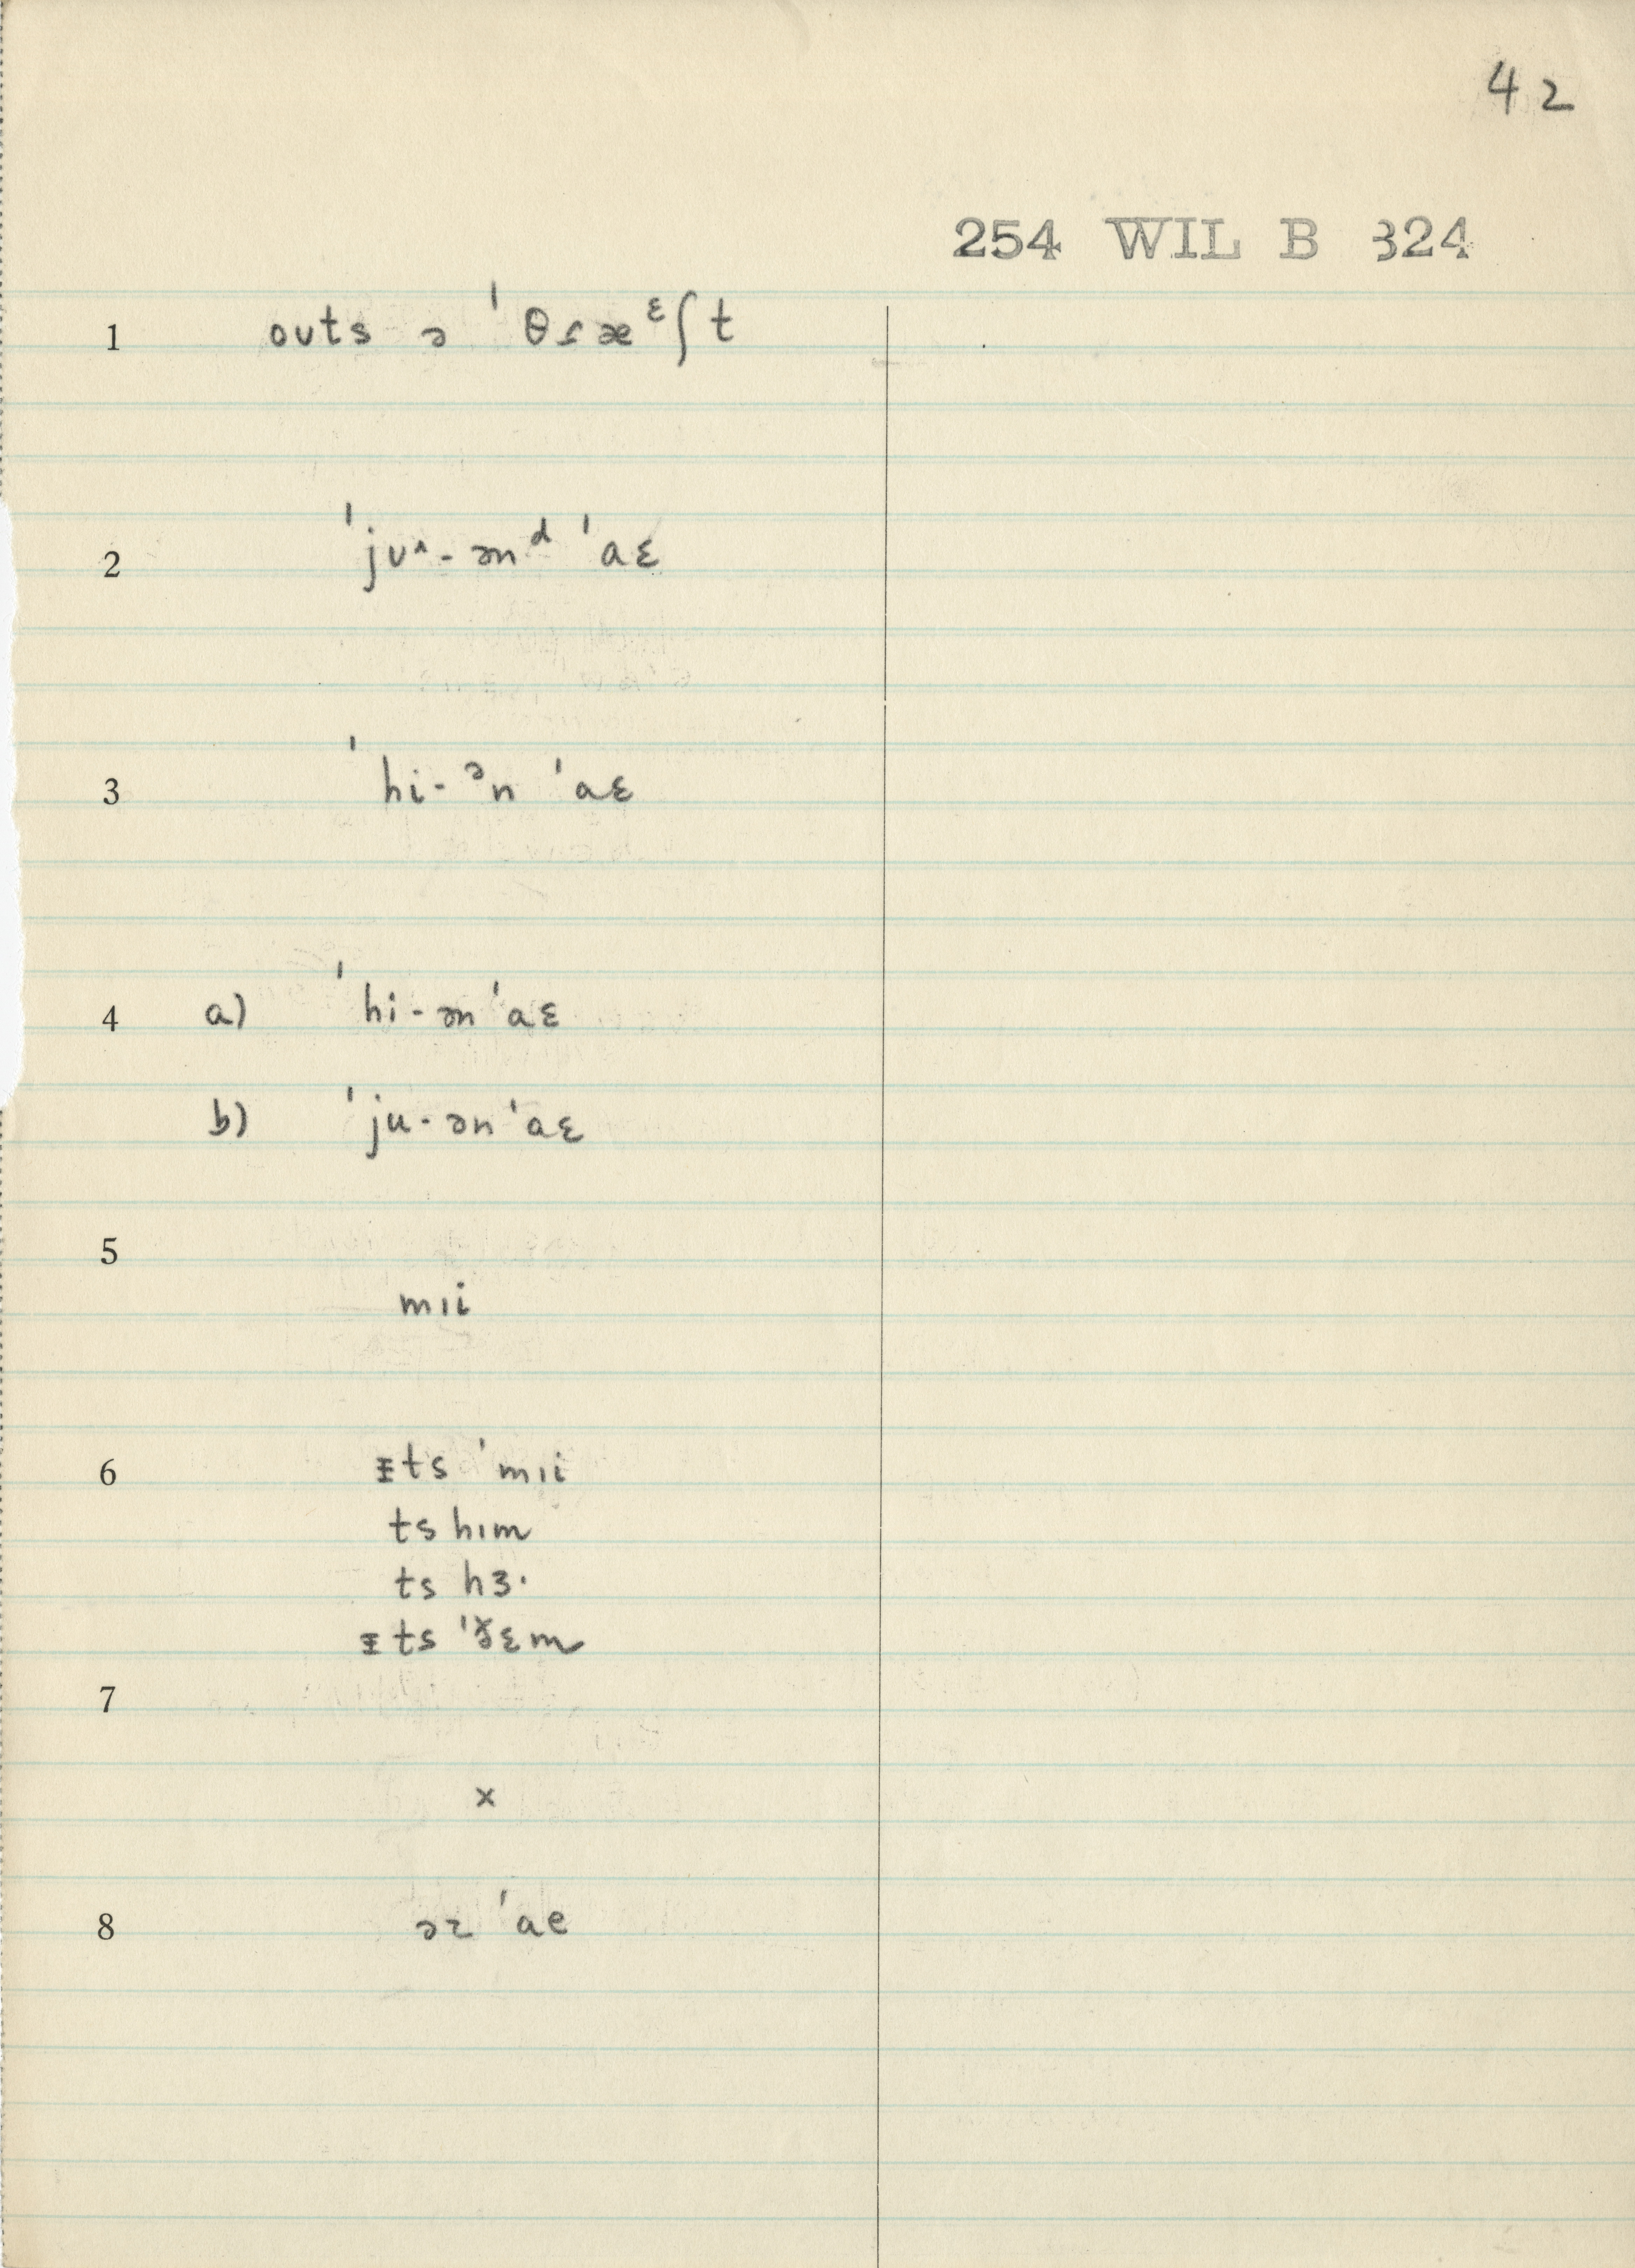 42
254 WIL B 324
1 oʊts ə ˈθɾæᵋʃt
2 ˈjʊ^-ənᵈ ˈaɛ
3 ˈhi-ᵊn ˈaɛ
4 a) ˈhi-ən ˈaɛ
b) ˈju-ən ˈaɛ
5
mɪi
6 ᵻts ˈmɪi
ts hɪm
ts hɜ·
ᵻts ˈðɛm
7
x
8 əz ˈae